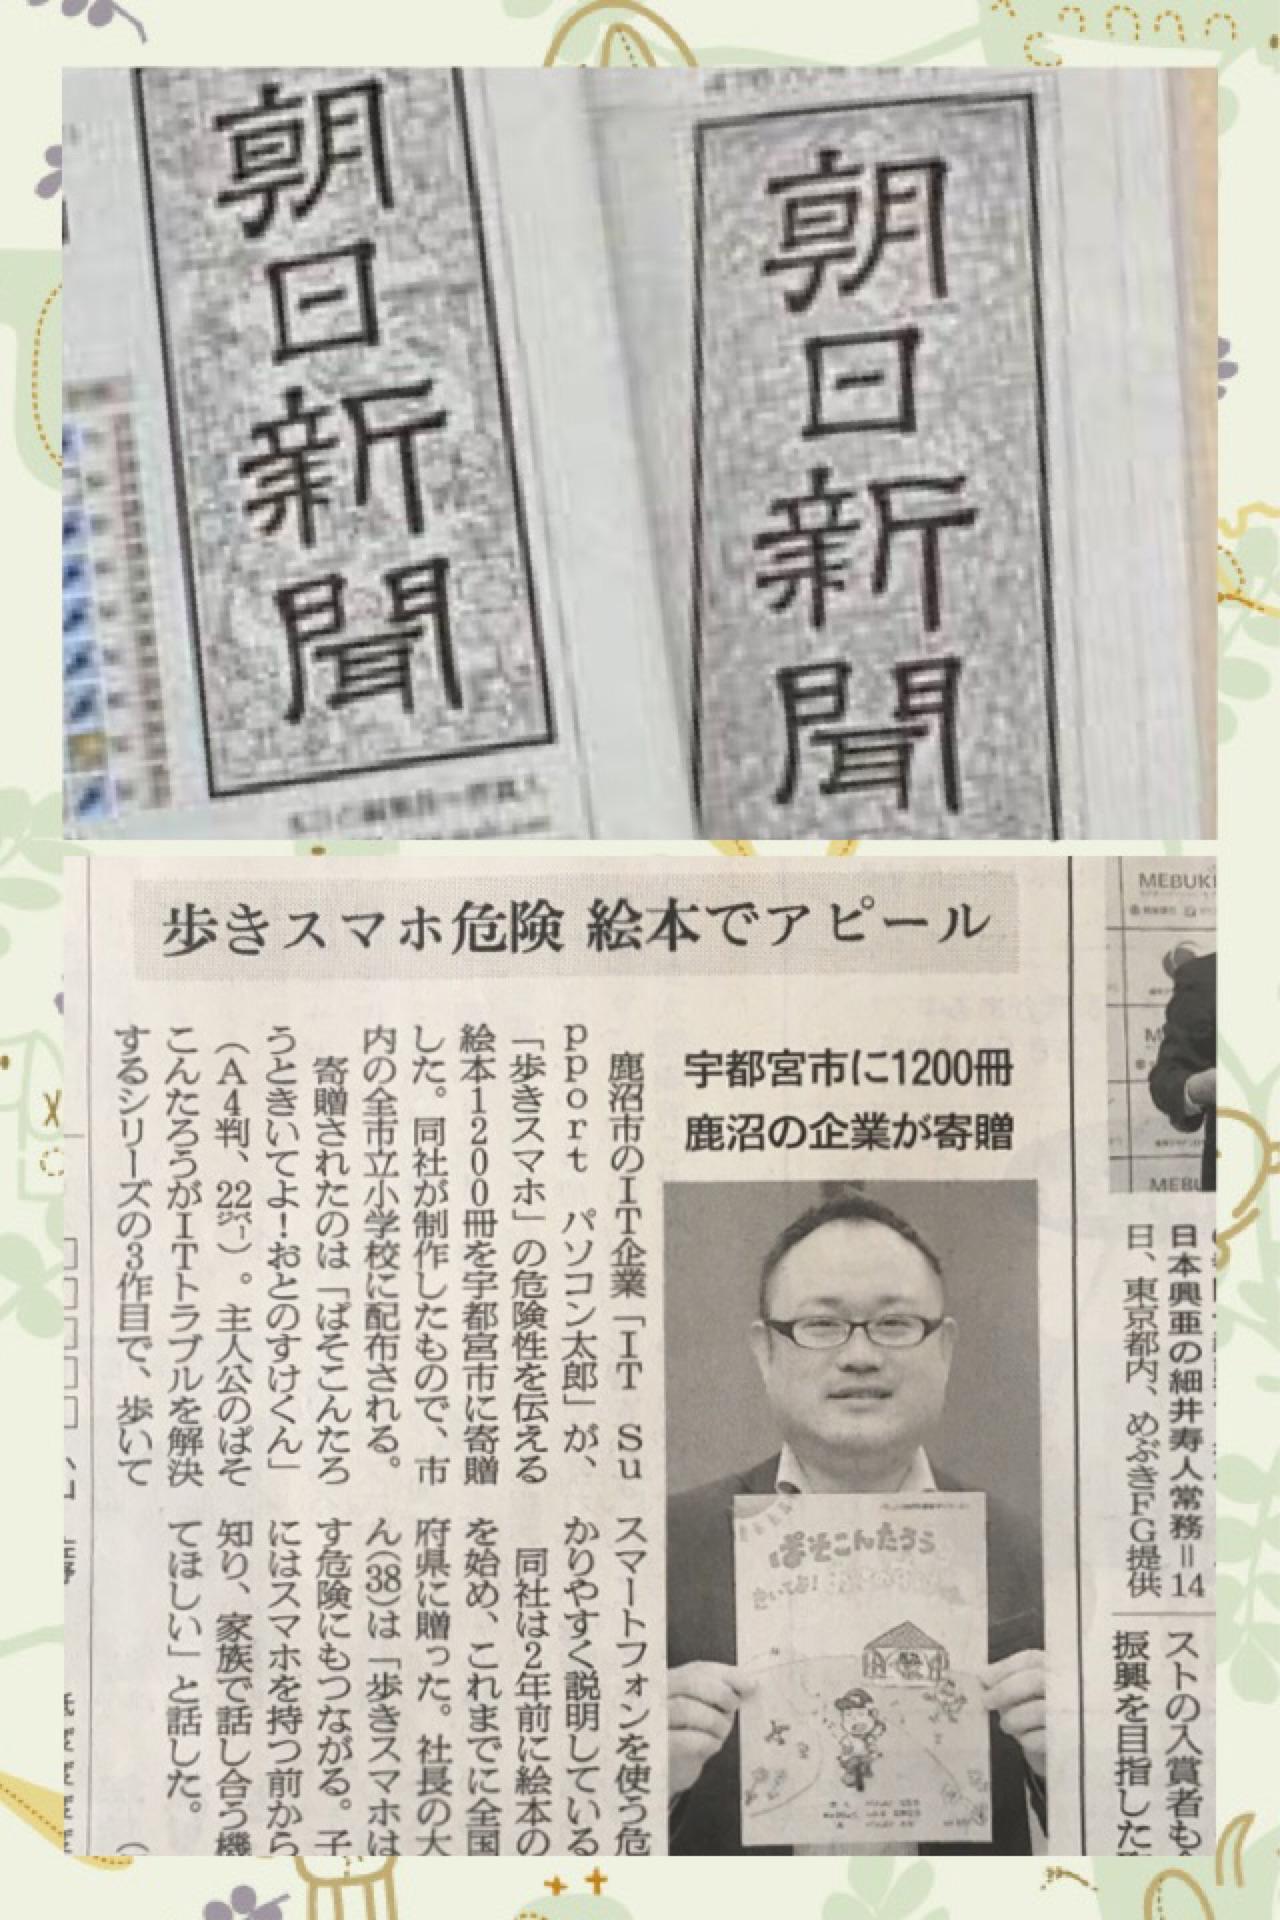 朝日新聞
朝日新聞
歩きスマホ危険 絵本でアピール
宇都宮市に1200冊
鹿沼の企業が寄贈
鹿沼市のIT企業「IT Su
pport パソコン太郎」が、
「歩きスマホ」の危険性を伝える
絵本1200冊を宇都宮市に寄贈
した。同社が制作したもので、市
内の全市立小学校に配布される。
寄贈されたのは「ぱそこんたろ
うときいてよ!おとのすけくん」
(A4判、22ページ)。主人公のぱそ
こんたろうがITトラブルを解決
するシリーズの3作目で、歩いて
スマートフォンを使う危
かりやすく説明している
同社は2年前に絵本の
を始め、これまでに全国
府県に贈った。社長の大
ん(38)は「歩きスマホは
す危険にもつながる。子
にはスマホを持つ前から
知り、家族で話し合う機
てほしい」と話した。
ぱそこんたろう
きいてよ!
MEBUKI
MEBU
日本興亜の細井寿人常務=14
日、東京都内、めぶきFG提供
ストの入賞者も
振興を目指した